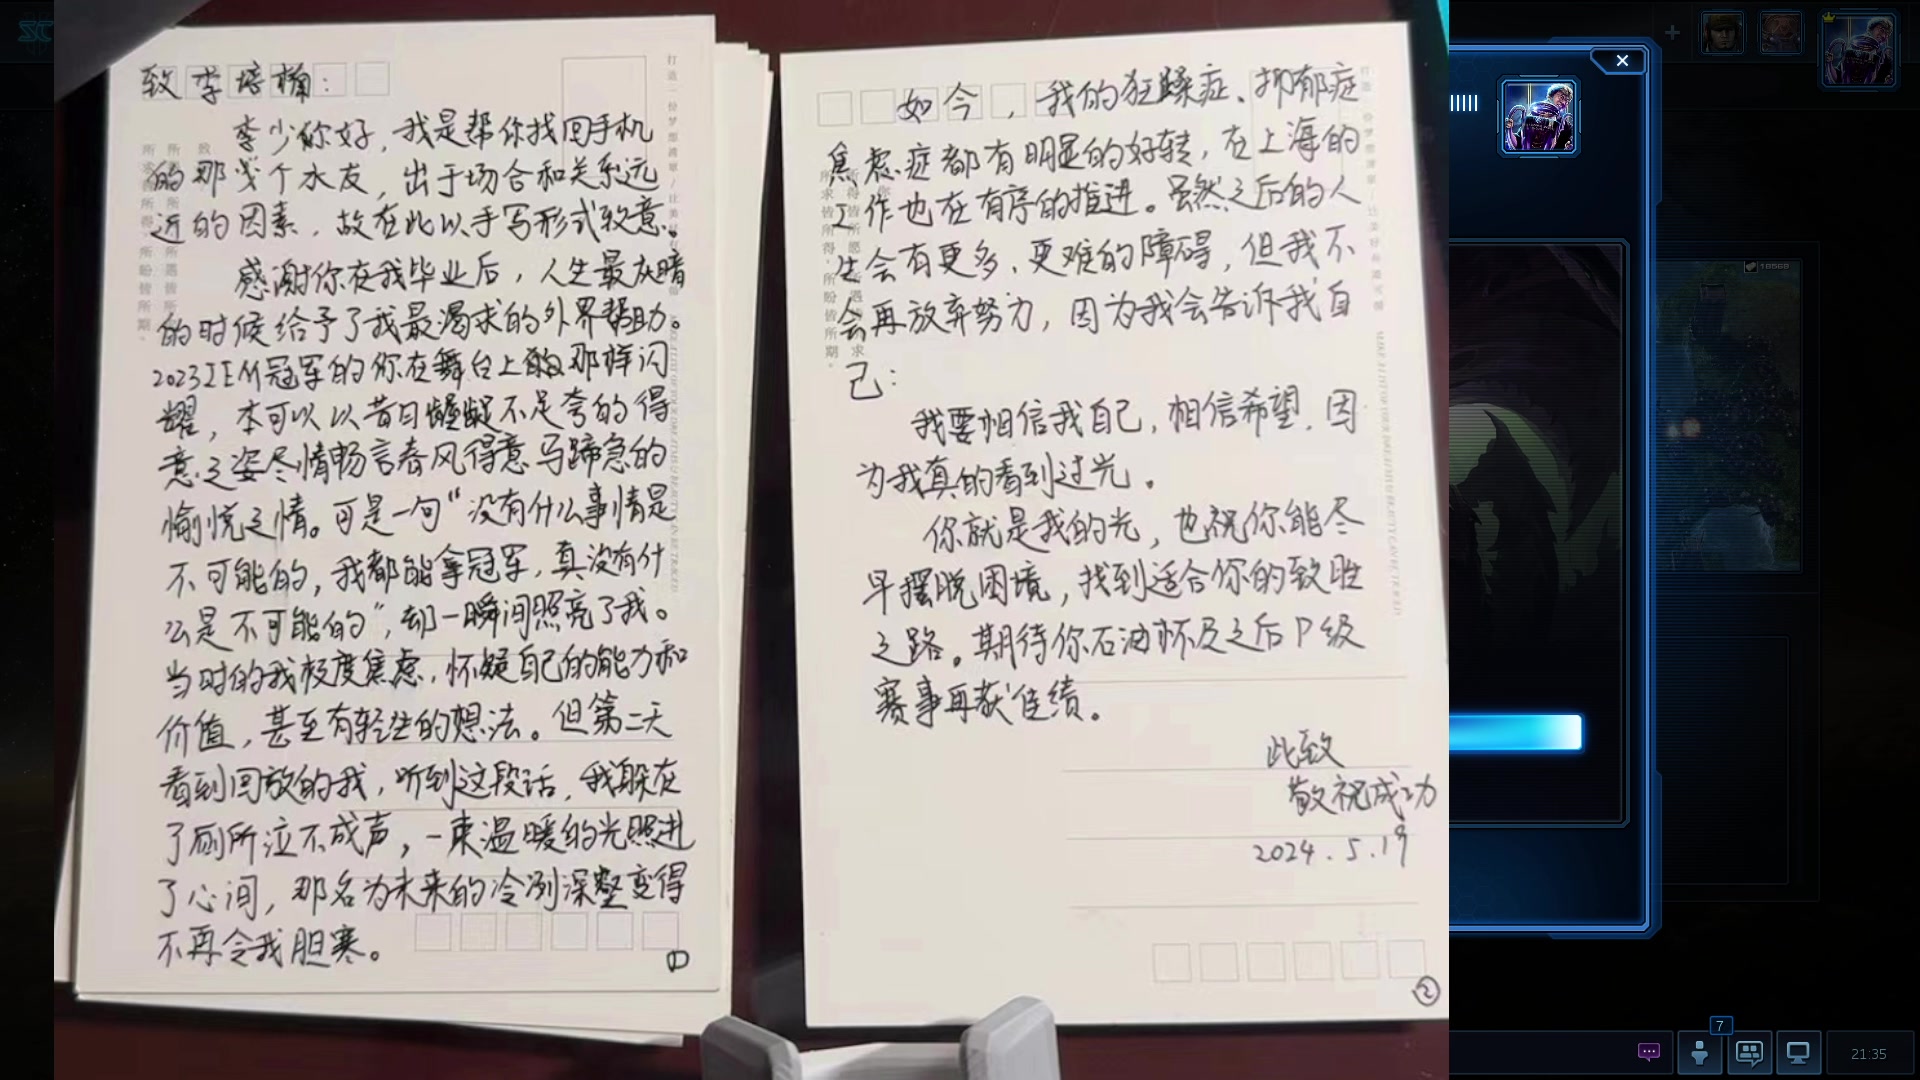 致李培楠：
李少你好，我是帮你找回手机
的那个水友，出于场合和关系远
近的因素，故在此以手写形式致意。
感谢你在我毕业后，人生最灰暗
的时候给予了我最渴求的外界帮助。
2023IEM冠军的你在舞台上那样闪
耀，本可以以昔日龌龊不足夸的得
意之姿尽情畅言春风得意马蹄急的
愉悦之情。可是一句“没有什么事情是
不可能的，我都能拿冠军，真没有什
么是不可能的”，却一瞬间照亮了我。
当时的我极度焦虑，怀疑自己的能力和
价值，甚至有轻生的想法。但第二天
看到回放的我，听到这段话，我躲在
了厕所泣不成声，一束温暖的光照进
了心间，那名为未来的冷冽深壑变得
不再令我胆寒。
①
如今，我的狂躁症、抑郁症
焦虑症都有明显的好转，在上海的
工作也在有序的推进。虽然之后的人
生会有更多、更难的障碍，但我不
会再放弃努力，因为我会告诉我自
己：
我要相信我自己，相信希望，因
为我真的看到过光。
你就是我的光，也祝你能尽
早摆脱困境，找到适合你的致胜
之路。期待你石油杯及之后P级
赛事再获佳绩。
此致
敬祝成功
2024.5.19
②
7
21:35